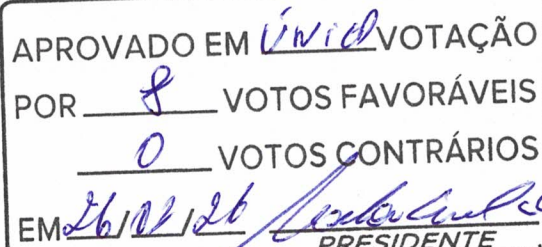 APROVADO EM ÚNICA VOTAÇÃO
POR 8 VOTOS FAVORÁVEIS
0 VOTOS CONTRÁRIOS
EM 26/ /26
PRESIDENTE